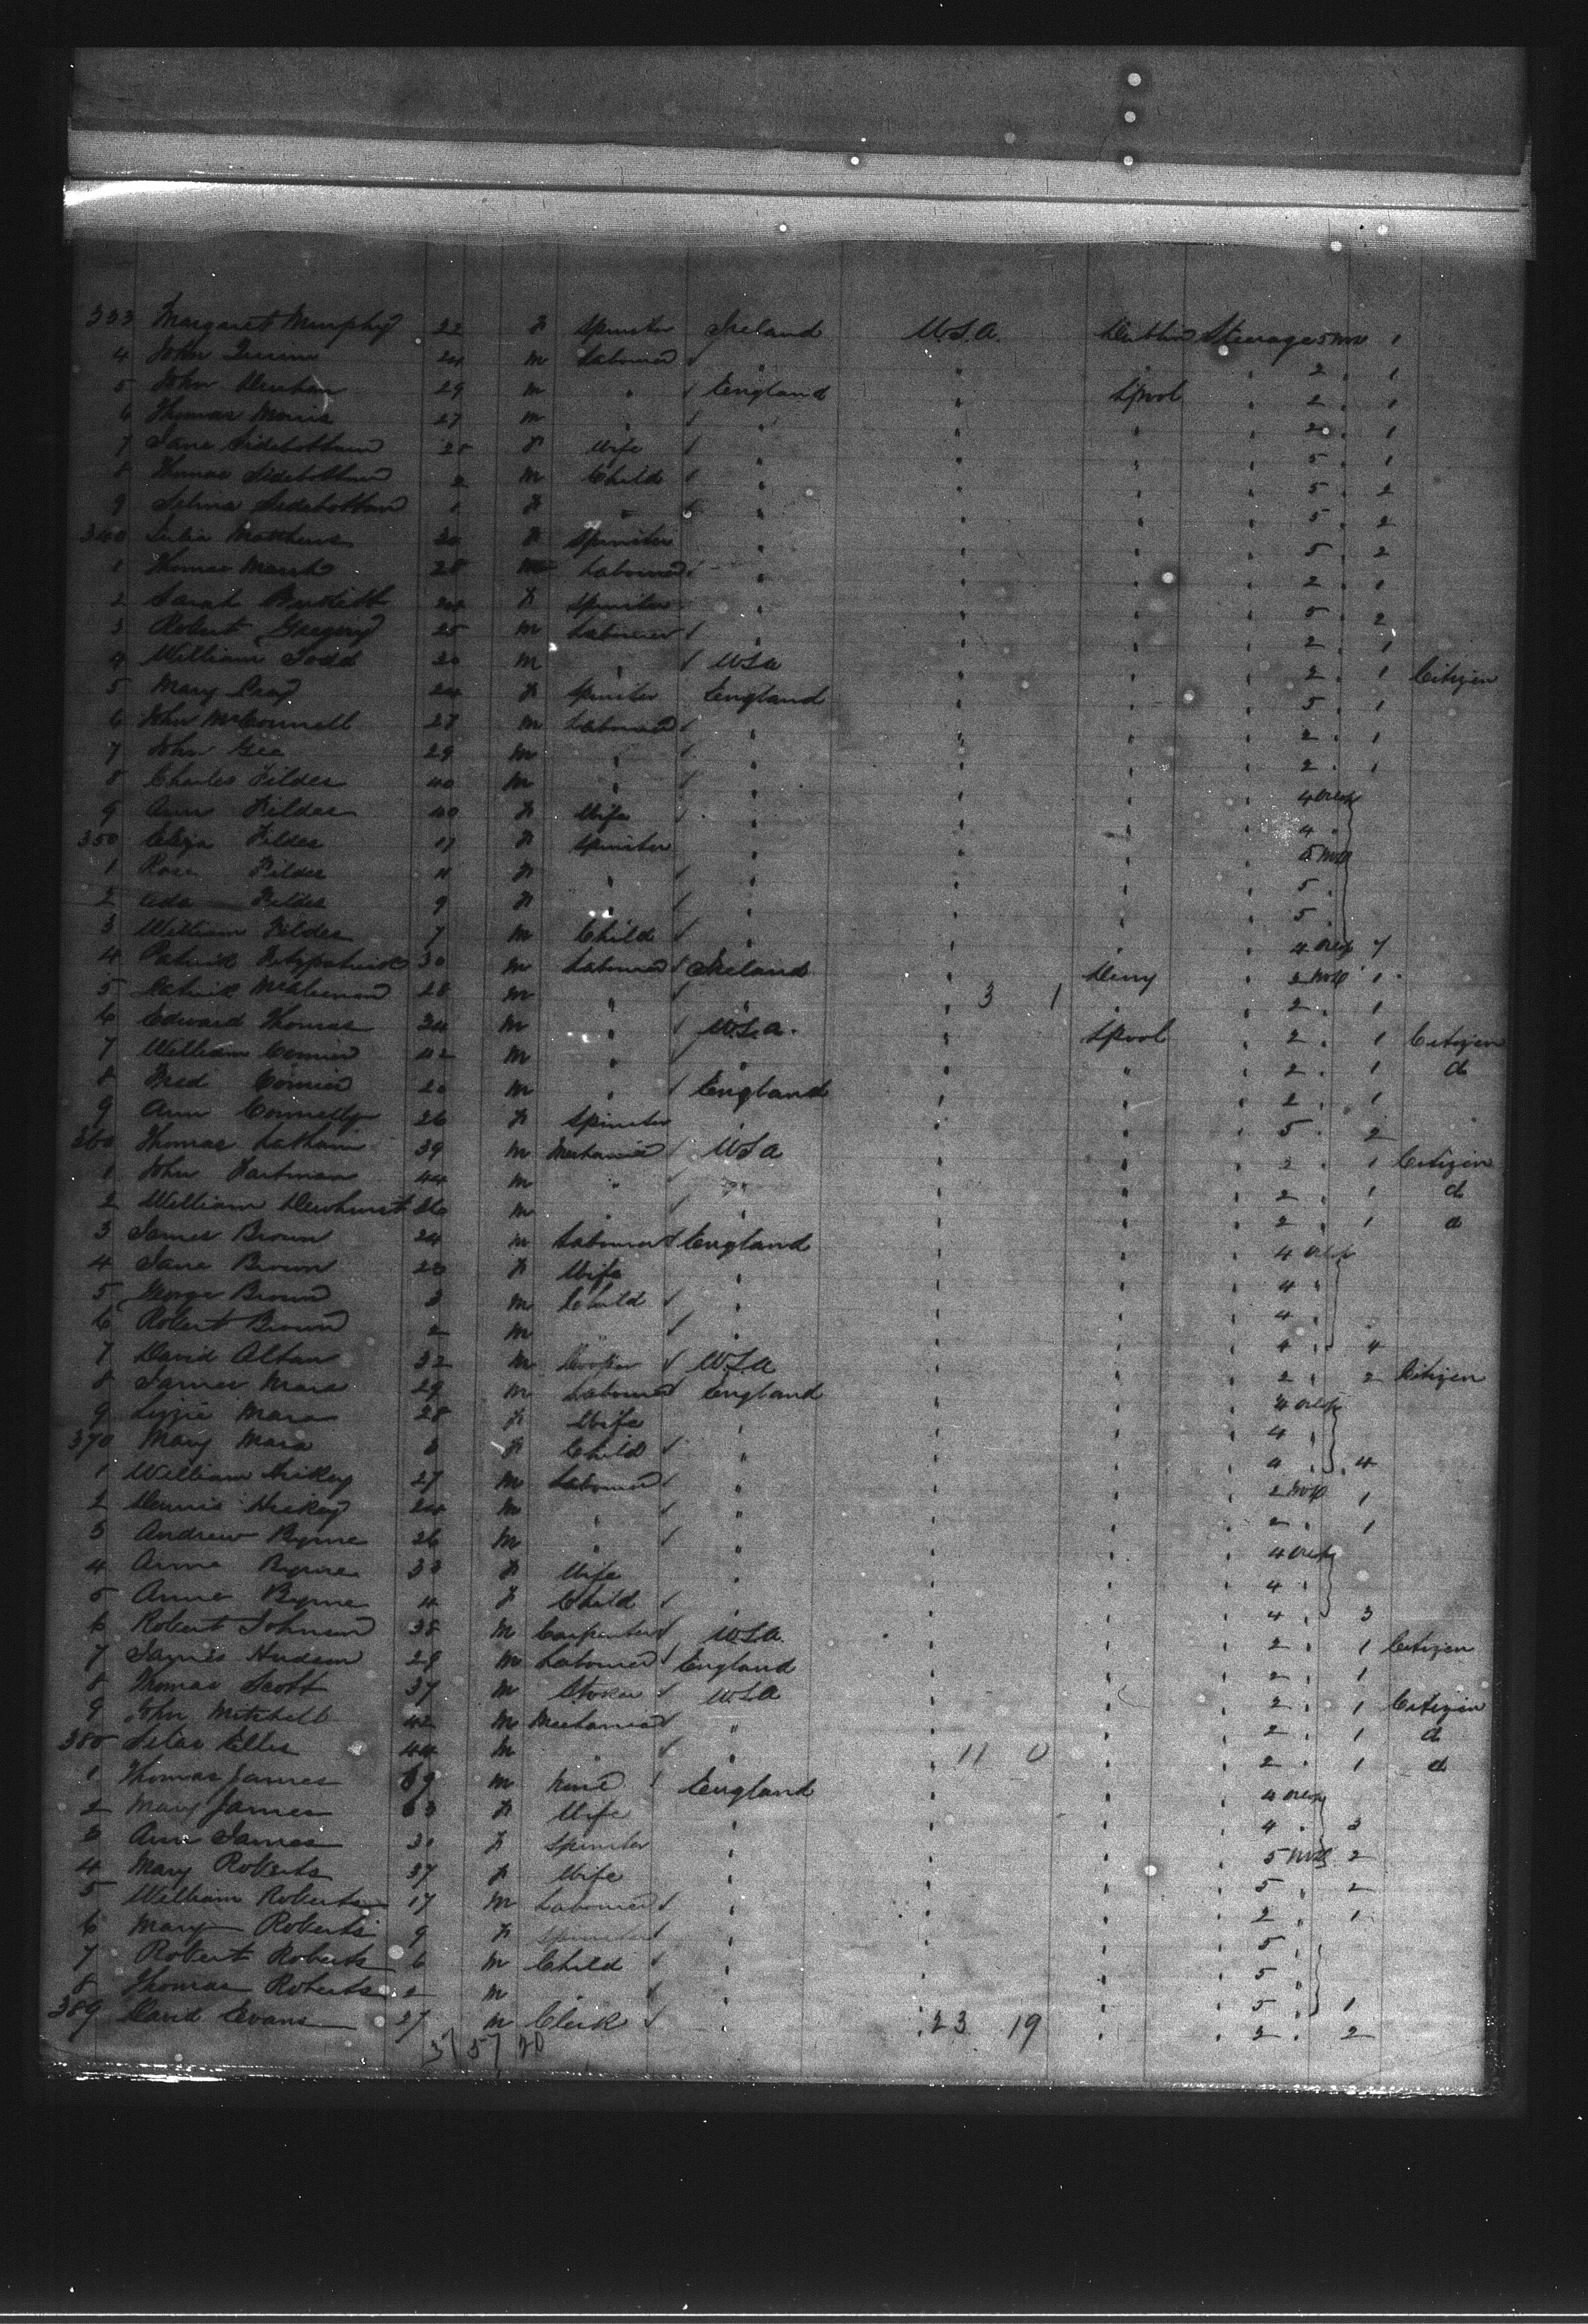 333 Margaret Murphy 22 f Spinster Ireland U.S.A. Dublin Steerage 5 1
4 John 24 m Labourer " " " 2 . 1
5 John 29 m " England " Lpool " 2 . 1
6 Thomas Morris 27 m " " " " " 2 . 1
7 Jane Sidebottom 28 f Wife " " " " 5 . 1
8 Thomas Sidebottom 2 m Child " " " " 5 . 2
9 Selina Sidebottom 1 f " " " " " 5 . 2
340 Julia Matthews 20 f Spinster " " " " 5 . 2
1 Thomas Marsh 28 m Labourer " " " " 2 . 1
2 Sarah 24 f Spinster " " " " 5 . 2
3 Robert Gregory 25 m Labourer " " " " 2 . 1
4 William Todd 20 m " U.S.A " " " 2 . 1 Citizen
5 Mary 24 f Spinster England " " " 5 . 1
6 John McConnell 27 m Labourer " " " " 2 . 1
7 John Gee 29 m " " " " " 2 . 1
8 Charles Fildes 40 m " " " " " 4
9 Ann Fildes 40 f Wife " " " " 4 "
350 Eliza Fildes 17 f Spinster " " " " 5
1 Rose Fildes 11 f " " " " " 5 "
2 Ada Fildes 9 f " " " " " 5 "
3 William Fildes 7 m Child " " " " 4 7
4 Patrick Fitzpatrick 30 m Labourer Ireland " Derry " 2 1
5 Patrick 28 m " " " 3 1 " " 2 . 1
6 Edward Thomas 34 m " U.S.A. Lpool " 2 . 1 Citizen
7 William 42 m " " " " " 2 . 1 d
8 Fred 20 m " England " " " 2 . 1
9 Ann Connelly 26 f Spinster " " " " 5 . 2
360 Thomas Latham 39 m Mechanic U.S.A " " " 2 . 1 Citizen
1 John Hartman 44 m " " " " " 2 . 1 d
2 William Dewhurst 26 m " " " " " 2 . 1 d
3 James Brown 24 m Labourer England " " " 4
4 Jane Brown 20 f Wife " " " " 4 "
5 George Brown 3 m Child " " " " 4 "
6 Robert Brown 2 m " " " " " 4 . 4
7 David 32 m U.S.A " " " 2 . 2 Citizen
8 James Mara 29 m Labourer England " " " 4
9 Lizzie Mara 28 f Wife " " " " 4 "
370 Mary Mara 3 f Child " " " " 4 . 4
1 William Hickey 27 m Labourer " " " " 2 1
2 Dennis Hickey 24 m " " " " " 2 . 1
3 Andrew Byrne 26 m " " " " " 4
4 Anne Byrne 33 f Wife " " " " 4 "
5 Anne Byrne 4 f Child " " " " 4 . 3
6 Robert Johnson 38 m Carpenter U.S.A. " " " 2 . 1 Citizen
7 James Hudson 29 m Labourer England " " " 2 . 1
8 Thomas Scott 37 m Stoker U.S.A " " " 2 . 1 Citizen
9 John Mitchell 42 m Mechanic " " " " 2 . 1 d
380 Silas Ellis 44 m " " 11 0 " " 2 . 1 d
1 Thomas James 69 m England " " " 4
2 Mary James 63 f Wife " " " " 4 . 3
3 Ann James 30 f Spinster " " " " 5 2
4 Mary Roberts 37 f Wife " " " " 5 . 2
5 William Roberts 17 m Labourer " " " " 2 . 1
6 Mary Roberts 9 f Spinster " " " " 5 "
7 Robert Roberts 6 m Child " " " " 5 "
8 Thomas Roberts 2 m " " " " " 5 . 1
389 David Evans 27 m Clerk " 23 19 " " 2 . 2
37 57 20